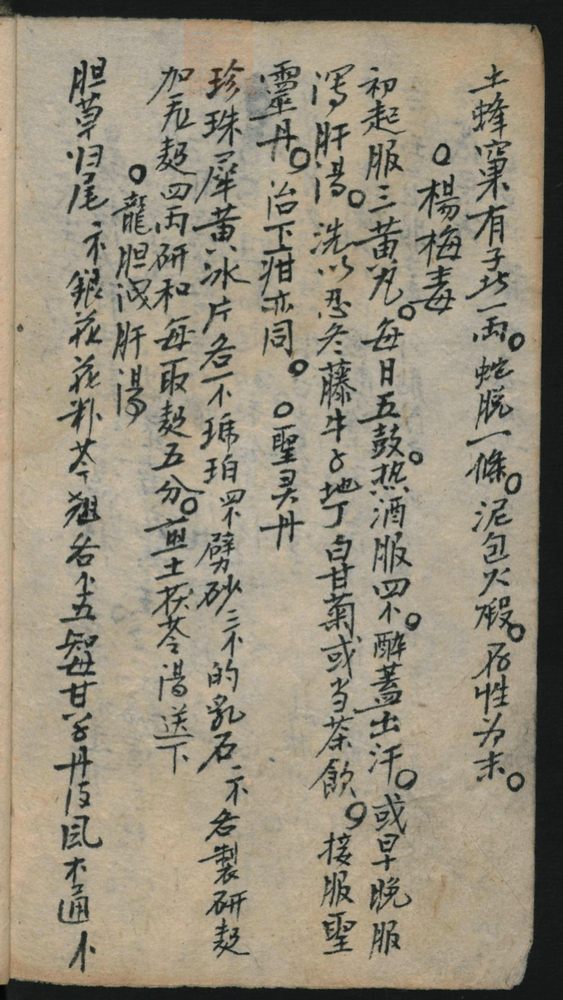 土蜂窠有子此一両。蛇脱一條。泥包火煅。存性为末。
○楊梅毒
初起服三黄丸。每日五鼓。热酒服四小。醉蓋出汗。或早晚服
瀉肝湯。洗以忍冬藤牛子地丁白甘菊或当茶飲。接服聖
靈丹。治下疳亦同。○聖灵丹
珍珠犀黄冰片各一个琥珀四个劈砂二个的乳石一个各製研麪
加飛麪四両研和每取麪五分。煎土茯苓湯送下
○龍胆泻肝湯
胆草归尾銀花花粉芩各五知母甘草丹皮風木通